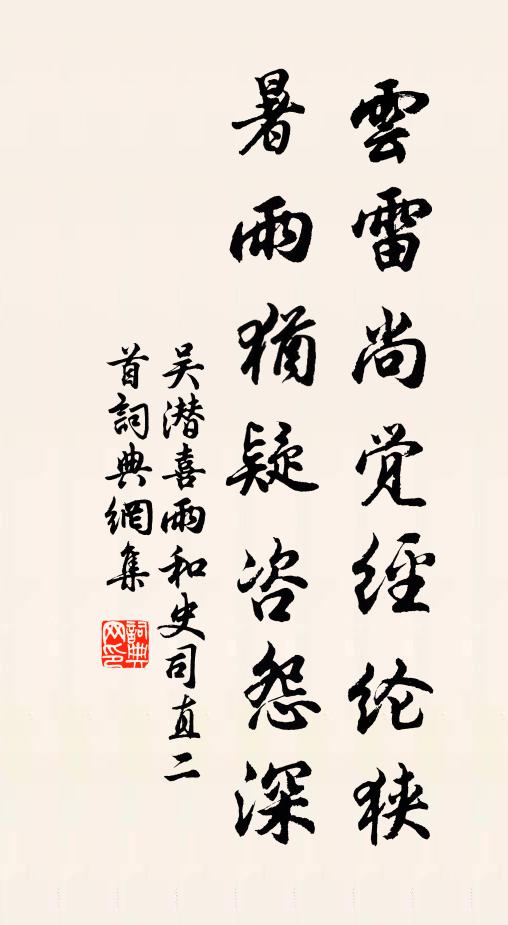 雲雷尚觉經纶狭
暑雨猶疑咨怨深
吴潜喜雨和史司直二
首詞典網集
詞典
网印